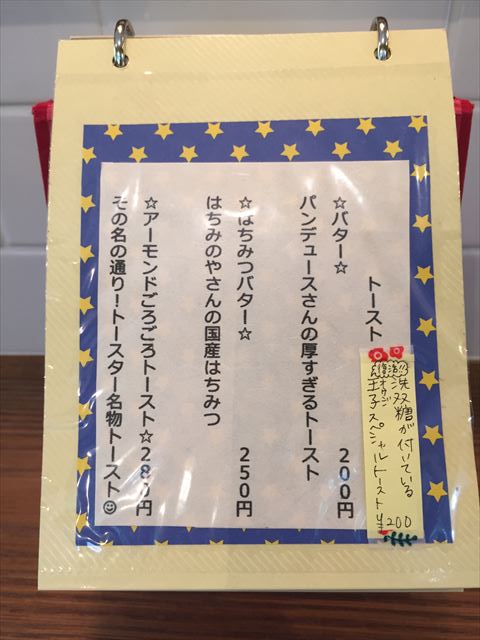 トースト
☆バター☆ 200円
パンデュースさんの厚すぎるトースト
☆はちみつバター☆ 250円
はちみのやさんの国産はちみつ
☆アーモンドごろごろトースト☆280円
その名の通り！トースター名物トースト☺
洗双糖が付いている
復活 オウジ
王子スペシャルトースト ¥200